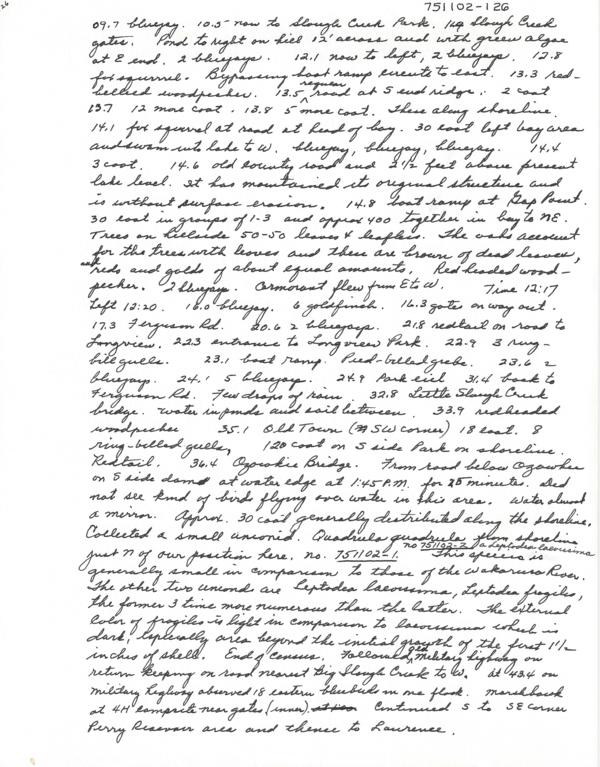 26
751102-126
09.7 bluejay. 10.5 now to Slough Creek Park. Slough Creek
gates. Pond to right on hill 12' across and with green algae
at E end. 2 bluejays. 12.1 now to left, 2 bluejays. 12.8
fox squirrel. Bypassing boat ramp enroute to east. 13.3 red-
bellied woodpecker. 13.5 regular road at S end ridge. 2 coot
13.7 12 more coot. 13.8 5 more coot. These along shoreline.
14.1 fox squirrel at road at head of bay. 30 coot left bay area
and swam into lake to W. bluejay, bluejay, bluejay. 14.4
3 coot. 14.6 old county road end 2½ feet above present
lake level. It has maintained its original structure and
is without surface erosion. 14.8 boat ramp at Gap Point.
30 coot in groups of 1-3 and approx 400 together in bay to NE.
Trees on hillside 50-50 leaves & leafless. The oaks account
for the trees with leaves and these are brown of dead leaves,
and reds and golds of about equal amounts. Red headed wood-
pecker. 2 bluejays. Cormorant flew from E to W. Time 12:17
Left 12:20. 16.0 bluejay. 6 goldfinch. 16.3 gate on way out.
17.3 Ferguson Rd. 20.6 2 bluejays. 21.8 redtail on road to
Longview. 22.3 entrance to Longview Park. 22.9 3 ring-
bill gulls. 23.1 boat ramp. Pied-billed grebe. 23.6 2
bluejays. 24.1 5 bluejays. 24.9 Park exit 31.4 back to
Ferguson Rd. Few drops of rain. 32.8 Little Slough Creek
bridge. Water in ponds and soil between. 33.9 redheaded
woodpecker 35.1 Old Town (SW corner) 18 coot. 8
ring-billed gulls, 120 coot on S side Park on shoreline.
Redtail. 36.4 Ozawkie Bridge. From road below Ozawkie
on S side dam at water edge at 1:45 P.M. for 25 minutes. Did
not see kind of bird flying over water in this area. Water almost
a mirror. Approx. 30 coot generally distributed along the shoreline.
Collected a small unionid. Quadrula quadrula from shoreline
no 751102-2 a Leptodea laevissima
just N of our position here. no. 751102-1. This species is
generally small in comparison to those of the Wakarusa River.
The other two unionid are Leptodea laevissima, Leptodea fragilis,
the former 3 time more numerous than the latter. The external
color of fragilis is light in comparison to laevissima which is
dark, especially area beyond the initial growth of the first 1½
inches of shell. End of census. Followed old Military highway on
return keeping on road nearest Big Slough Creek to W. At 43.4 on
military highway observed 18 eastern bluebirds in one flock. Marsh hawk
at 4H campsite near gates (inner). Continued S to SE corner
Perry Resevoir area and thence to Lawrence.